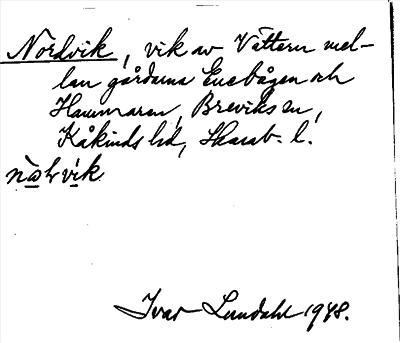 Nordvik, vik av Vättern mel-
lan gårdarna Enebågen och
Hammaren, Breviks sn,
Kåkinds hd, Skarab. l.
vik
Ivar Lundahl 1948.